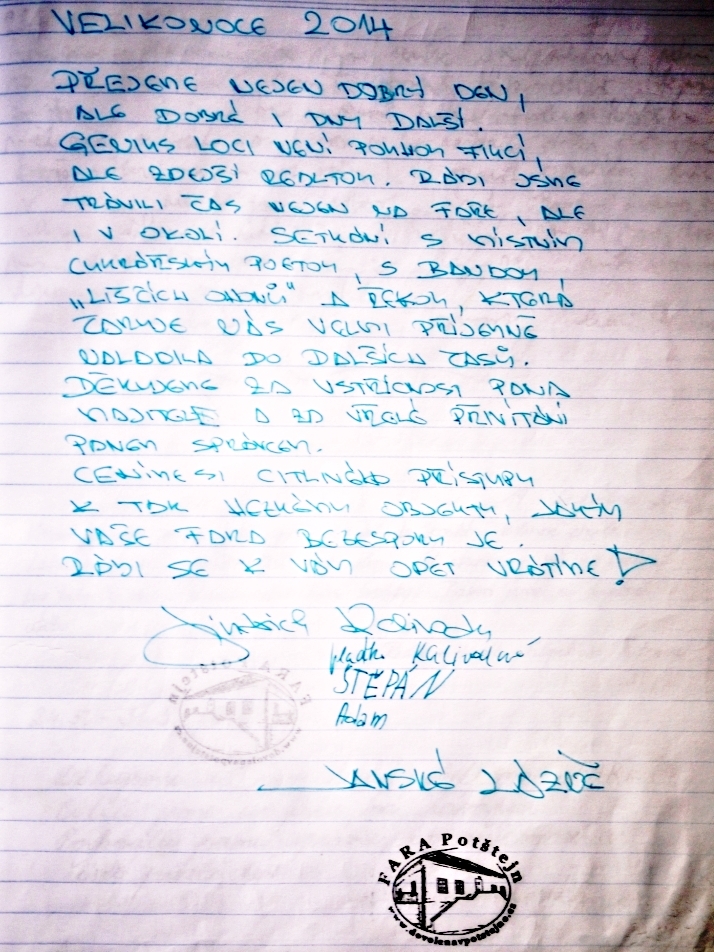 VELIKONOCE 2014
PŘEJEME NEJEN DOBRÝ DEN,
ALE DOBRÉ I DNY DALŠÍ.
GENIUS LOCI NENÍ POUHOU FIKCÍ,
ALE ZDEJŠÍ REALITOU. RÁDI JSME
TRÁVILI ČAS NEJEN NA FAŘE, ALE
I V OKOLÍ. SETKÁNÍ S MÍSTNÍM
CUKRÁŘSKÝM POETOU, S BANDOU
„LIŠČÍCH OHONŮ" A ŘEKOU, KTERÁ
ČARUJE NÁS VELMI PŘÍJEMNĚ
NALADILA DO DALŠÍCH ČASŮ.
DĚKUJEME ZA VSTŘÍCNOST PANA
MAJITELE A ZA VŘELÉ PŘIVÍTÁNÍ
PANEM SPRÁVCEM.
CENÍME SI CITLIVÉHO PŘÍSTUPU
K TAK HEZKÉMU OBJEKTU, JAKÝM
VAŠE FARA BEZESPORU JE.
RÁDI SE K VÁM OPĚT VRÁTÍME!
Jindřich Kalivoda
Kalivodová
ŠTĚPÁN
Adam
JANSKÉ LÁZNĚ
FARA Potštejn
FARA Potštejn
www.dovolenavpotstejne.cz